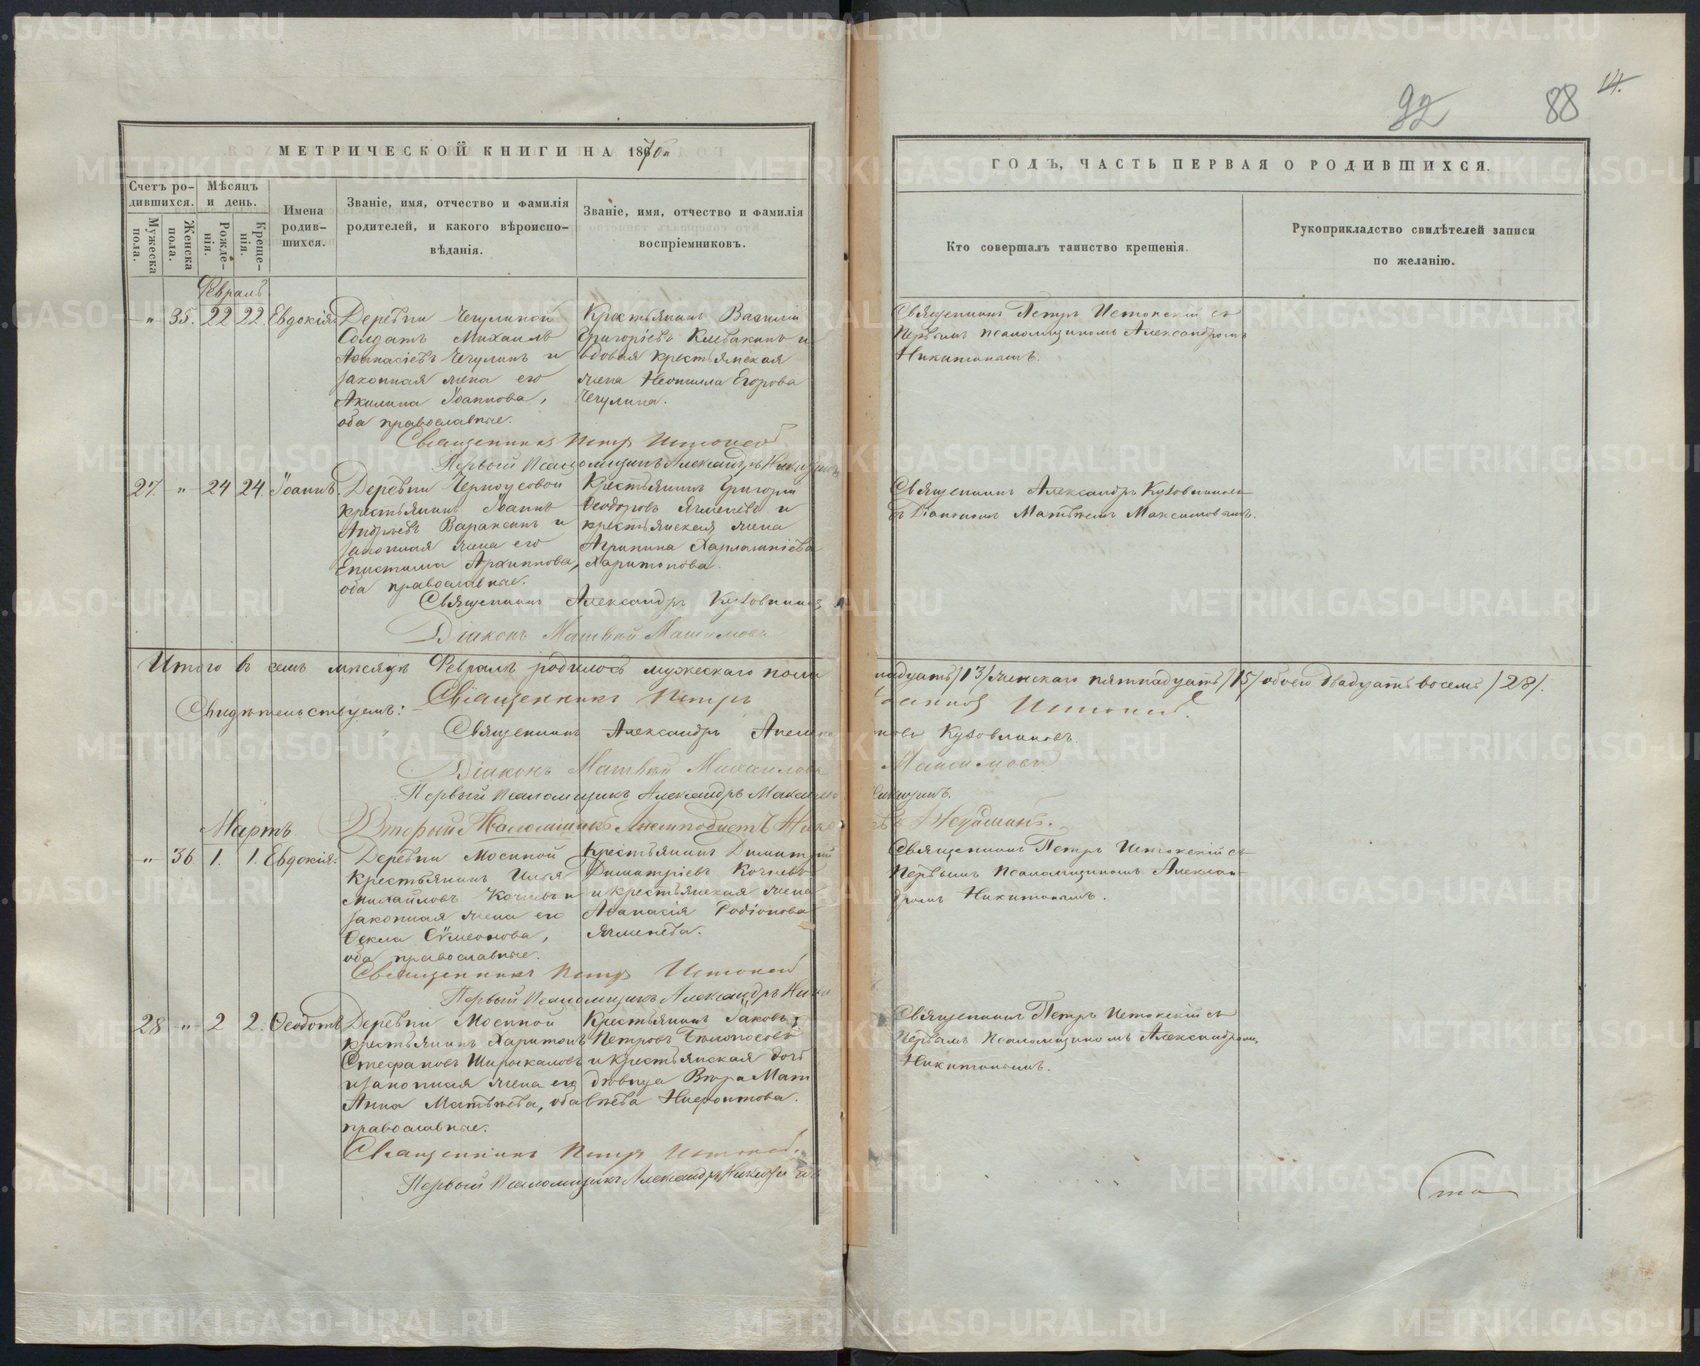 МЕТРИЧЕСКОЙ КНИГИ НА 1870й
Счетъ ро-
дившихся.
Мѣсяцъ
и день.
Мужеска
пола.
Женска
пола.
Рожде-
нія.
Креще-
нія.
Имена
родив-
шихся.
Званіе, имя, отчество и фамилія
родителей, и какого вѣроиспо-
вѣданія.
Званіе, имя, отчество и фамилія
воспріемниковъ.
Февраль
" 35. 22 22. Евдокія.
Деревни Чечулиной
Солдатъ Михаилъ
Аѳанасіевъ Чечулинъ и
законная жена его
Акилина Іоаннова,
оба православные.
Крестьянинъ Василій
Григоріевъ Клевакинъ и
вдовая крестьянская
жена Неонилла Егорова
Чечулина.
Священникъ Петръ Истокскій
Первый Псаломщикъ Александръ Никитинъ
27. " 24 24. Іоаннъ.
Деревни Черноусовой
крестьянинъ Іоаннъ
Андреевъ Вараксинъ и
законная жена его
Епистимія Архиппова,
оба православные.
Крестьянинъ Григорій
Ѳеодоровъ Ячменевъ и
крестьянская жена
Агрипина Харлампіева
Харитонова.
Священникъ Александръ Кузовниковъ
Діаконъ Матвей Максимовъ
Итого въ семъ мѣсяцѣ Февралѣ родилось мужескаго пола
Свидѣтельствуемъ: Священникъ Петръ
Священникъ Александръ
Діаконъ Матвей Михаиловъ
Первый псаломщикъ Александръ Максимо
Мартъ
Второй Псаломщикъ
" 36 1. 1. Евдокія.
Деревни Мосиной
Крестьянинъ Илья
Михайловъ Кочневъ и
законная жена его
Ѳекла Сѵмеонова,
оба православные.
Крестьянинъ Димитрій
Димитріевъ Кочневъ
и крестьянская жена
Аѳанасія Родіонова
Ячменева.
Священникъ Петръ Истокскій
Первый Псаломщикъ Александръ Ники
28 " 2 2. Ѳеодотъ.
Деревни Мосиной
крестьянинъ Харитонъ
Стефановъ Широкаловъ
и законная жена его
Анна Матвѣева, оба
православные.
Крестьянинъ Іаковъ
Петровъ Бѣлоносовъ
и крестьянская дочь
дѣвица Вѣра Мат
вѣева Нифонтова.
Священникъ Петръ Истокскій
Первый Псаломщикъ Александръ Никитинъ
92 88 14.
ГОДЪ, ЧАСТЬ ПЕРВАЯ О РОДИВШИХСЯ.
Кто совершалъ таинство крещенія.
Рукоприкладство свидѣтелей записи
по желанію.
Священникъ Петръ Истокскій съ
Первымъ псаломщикомъ Александромъ
Никитинымъ.
Священникъ Александръ Кузовниковъ
съ Діакономъ Матвѣемъ Максимовымъ.
надцать /13/ женскаго пятнадцать /15/ обоего двадцать восемь /28/.
Истокскій.
Кузовниковъ.
Максимовъ.
Никитинъ.
Священникъ Петръ Истокскій съ
Первымъ Псаломщикомъ Алексан-
дромъ Никитинымъ.
Священникъ Петръ Истокскій съ
Первымъ Псаломщикомъ Александромъ
Никитинымъ.
METRIKI.GASO-URAL.RU